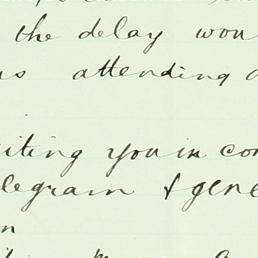 the delay wou
attending
iting you in con
legram + gene